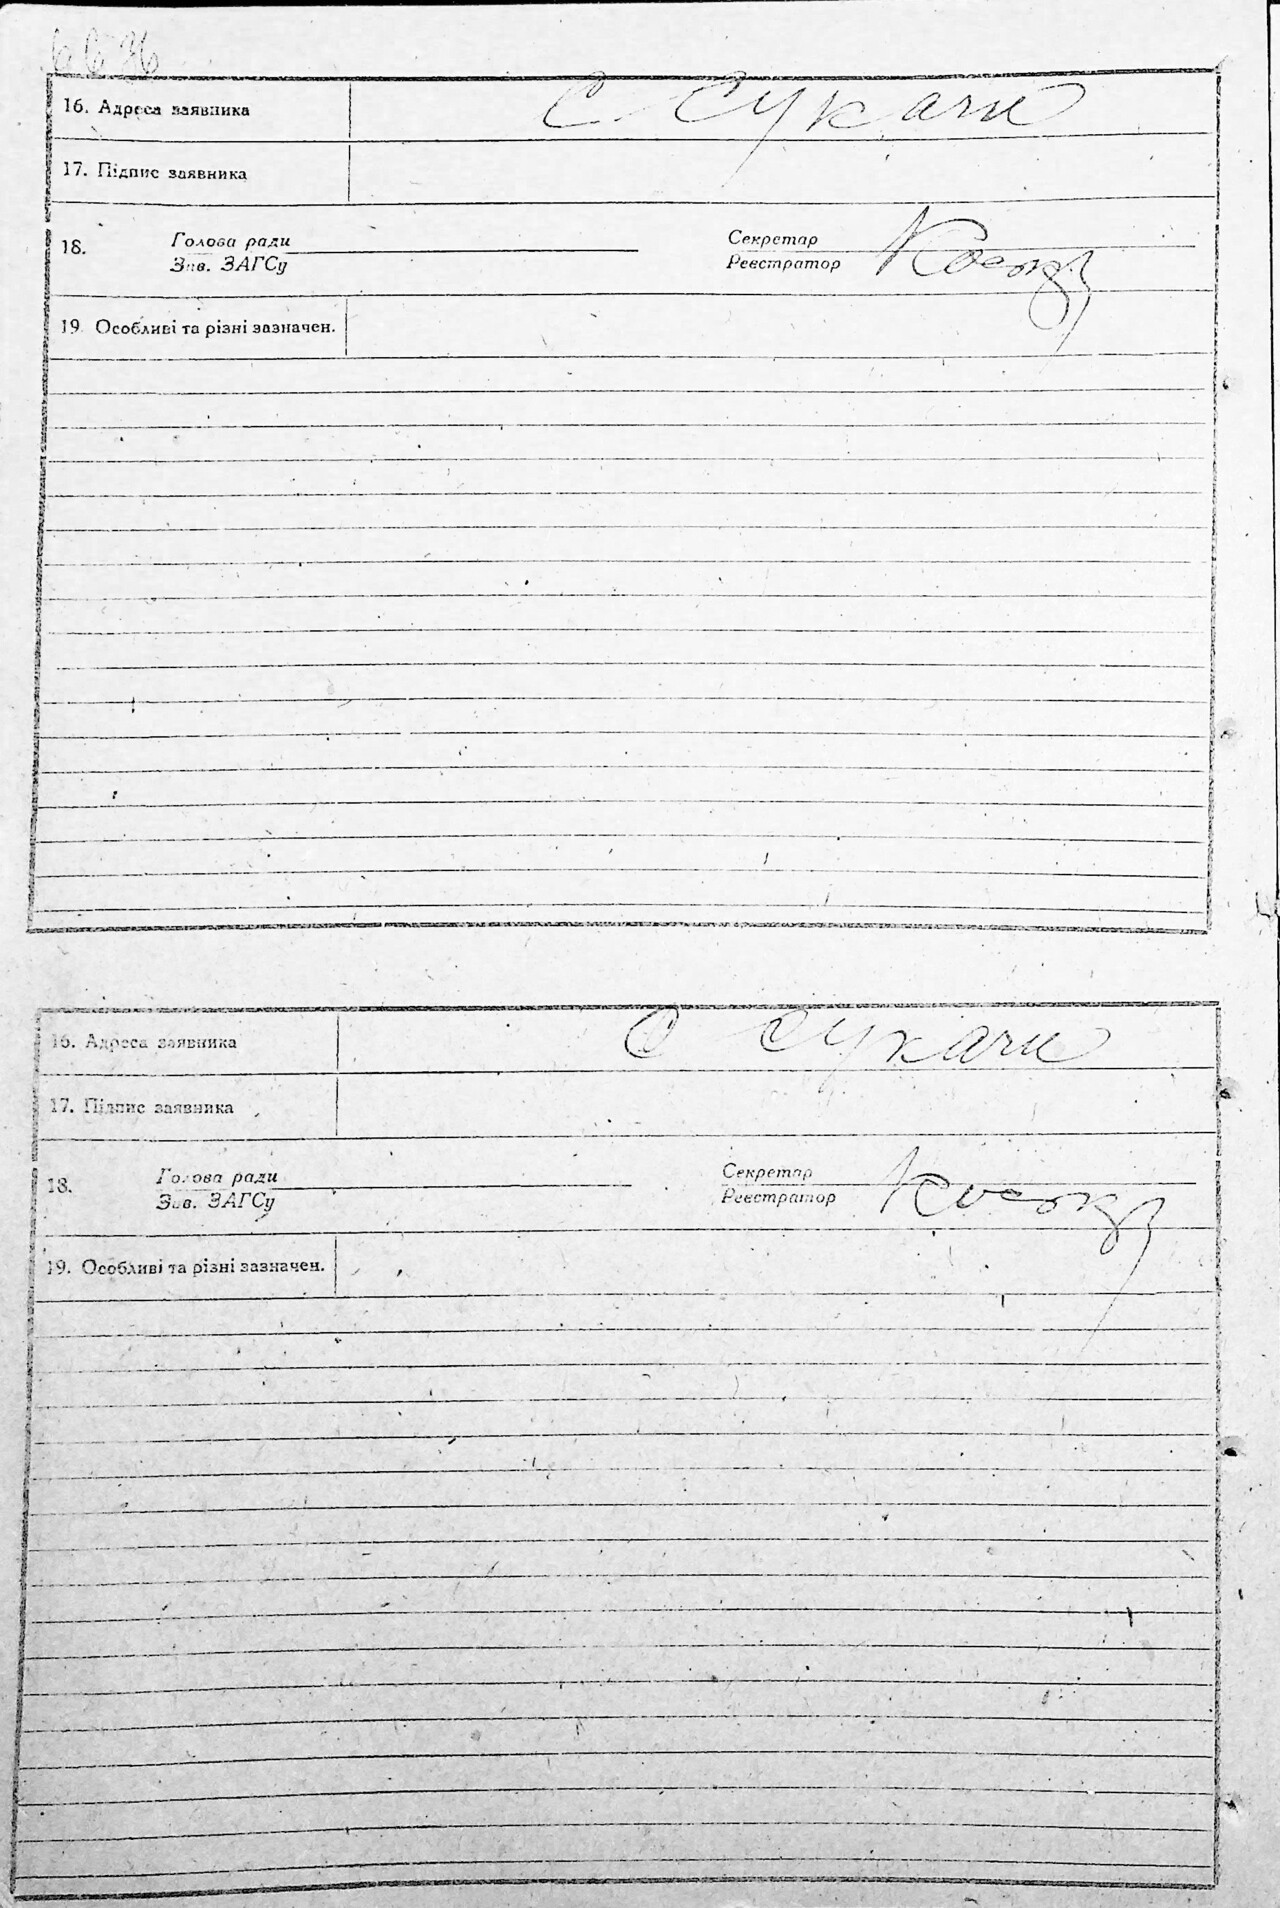 16. Адреса заявника с Сукачи
17. Підпис заявника
18. Голова ради Секретар
Зав. ЗАГСу Реєстратор
19. Особливі та різні зазначен.
16. Адреса заявника с Сукачи
17. Підпис заявника
18. Голова ради Секретар
Зав. ЗАГСу Реєстратор
19. Особливі та різні зазначен.